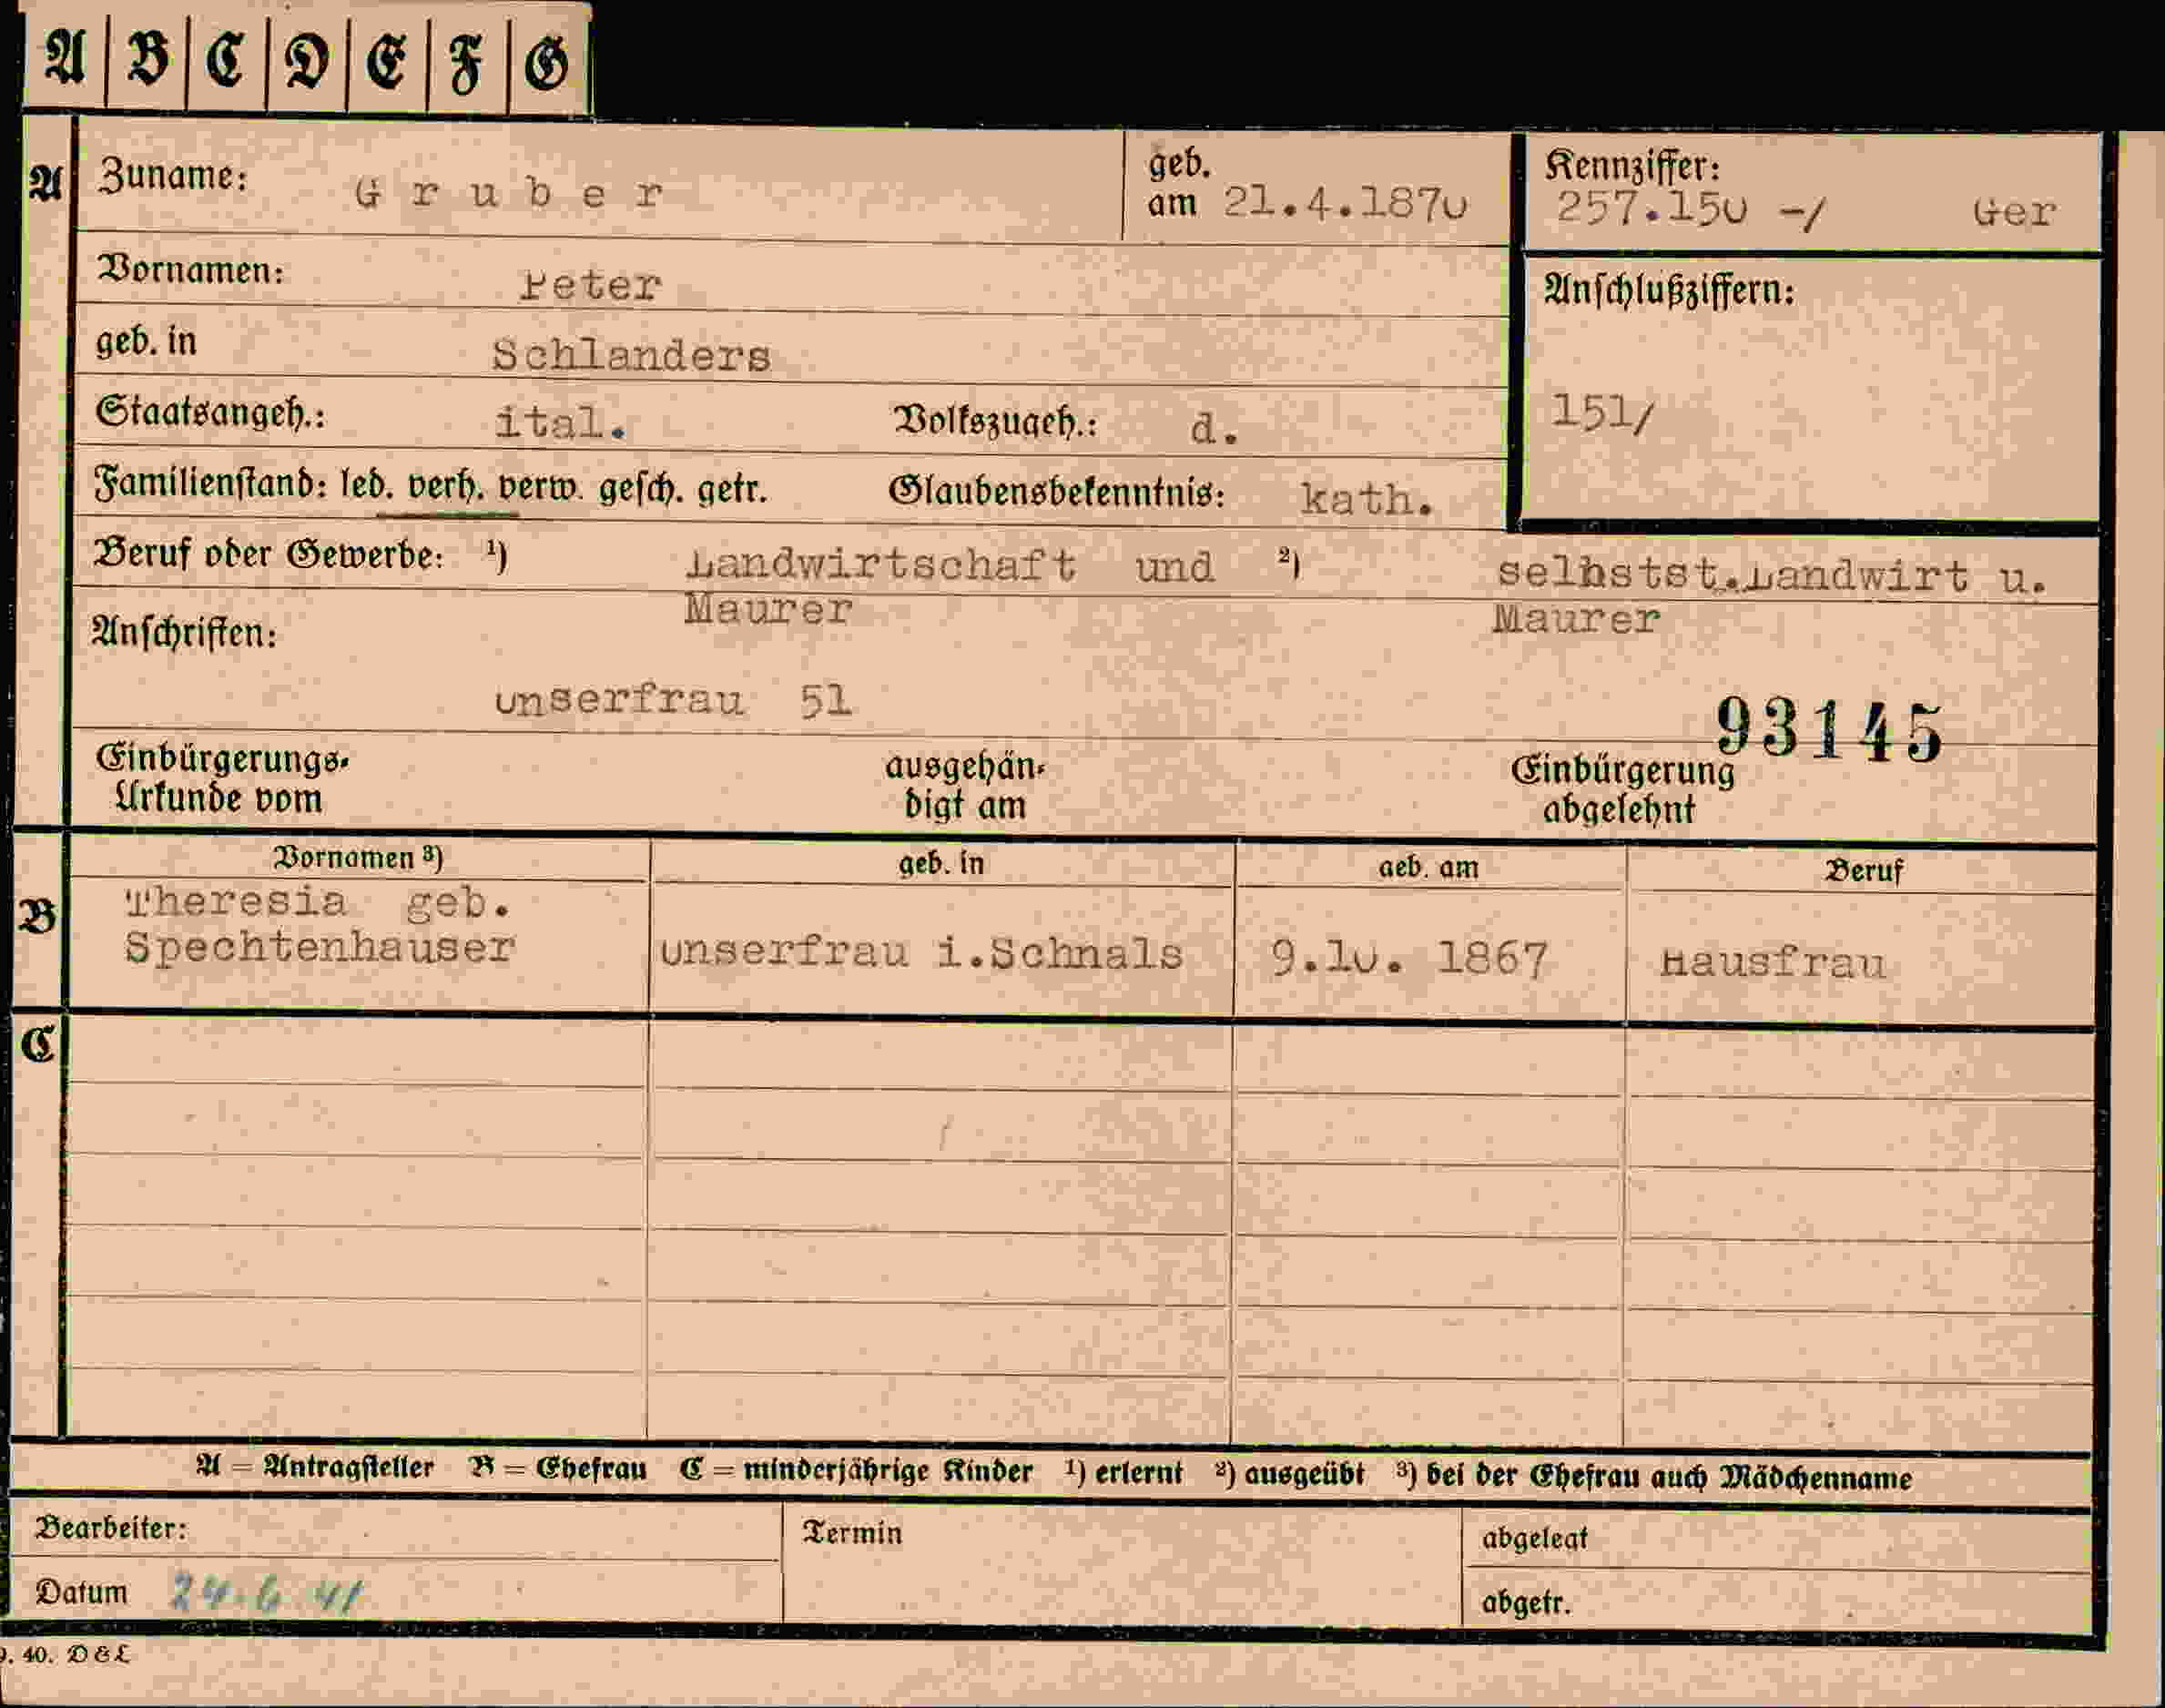 A B C D E F G
A Zuname: Gruber geb. am 21.4.1870 Kennziffer: 257.150 -/ Ger
Vornamen: Peter Anschlußziffern:
geb. in Schlanders
Staatsangeh.: ital. Volkszugeh.: d. 151/
Familienstand: led. verh. verw. gesch. getr. Glaubensbekenntnis: kath.
Beruf oder Gewerbe: ¹) Landwirtschaft und ²) selbstst.Landwirt u.
Maurer Maurer
Anschriften:
Unserfrau 51
93145
Einbürgerungs- ausgehän- Einbürgerung
Urkunde vom digt am abgelehnt
Vornamen ³) geb. in geb. am Beruf
B Theresia geb.
Spechtenhauser Unserfrau i.Schnals 9.10. 1867 Hausfrau
C
A = Antragsteller B = Ehefrau C = minderjährige Kinder ¹) erlernt ²) ausgeübt ³) bei der Ehefrau auch Mädchenname
Bearbeiter: Termin abgelegt
Datum 24.6 41 abgetr.
9. 40. D & L